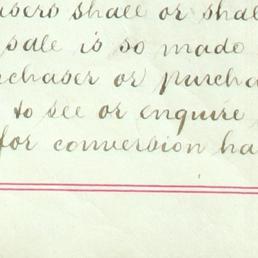 asers shall or shal
sale is so made
chaser or purcha
to see or enquire
for conversion ha